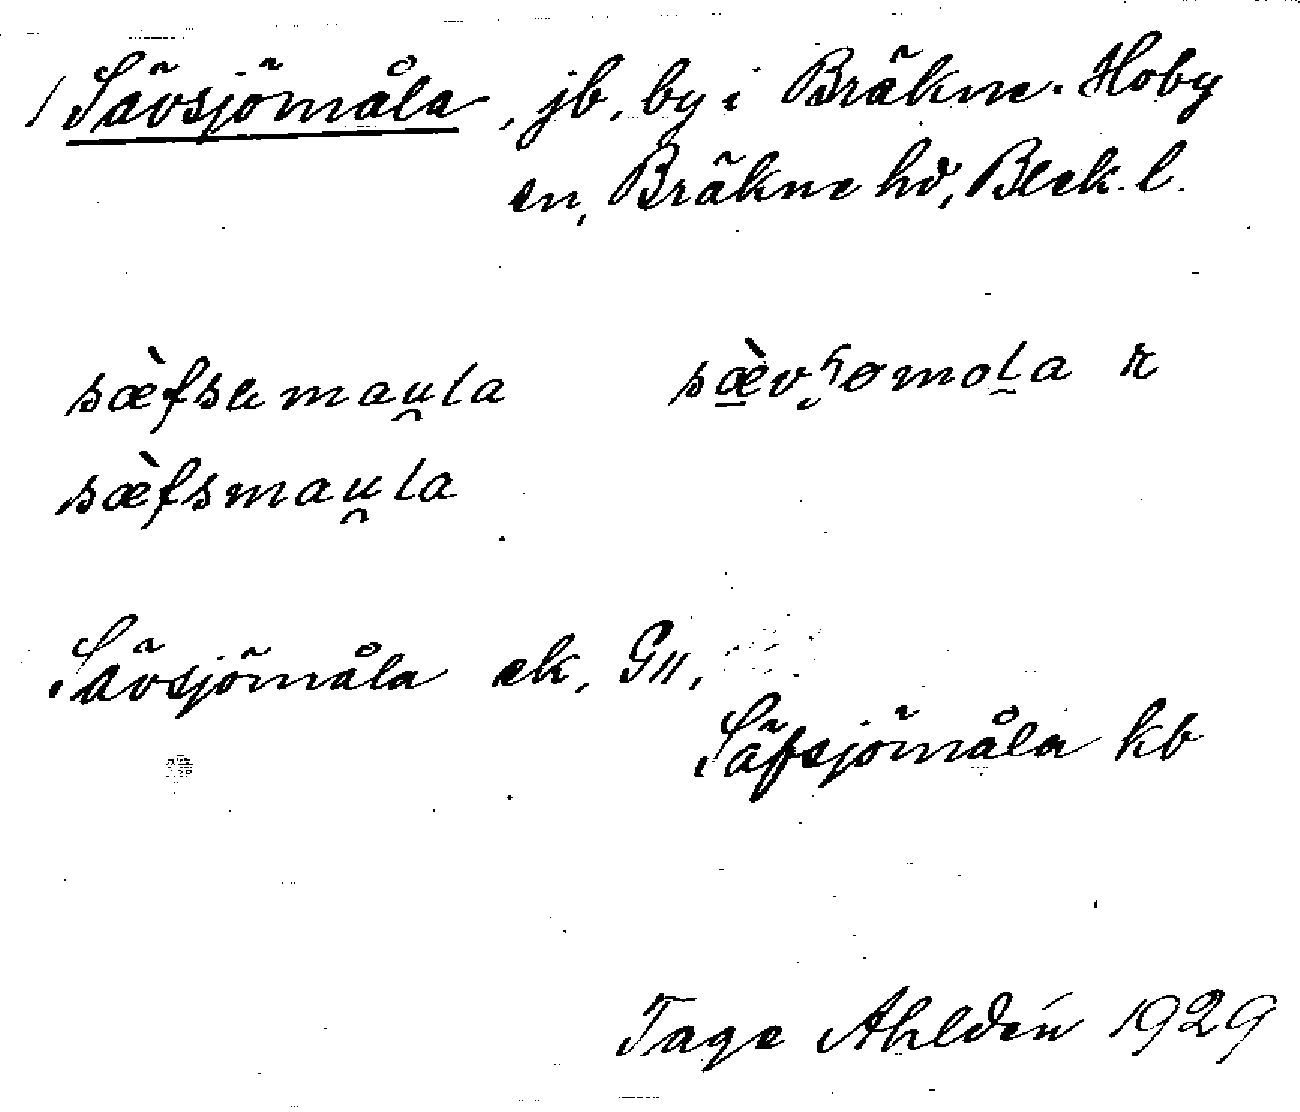 / Sävsjömåla, jb, by i Bräkne-Hoby
sn, Bräkne hd, Blek. l.
sæ̀fsamau̯la sæ̀vɧømola r
sæ̀fsmau̯la
Sävsjömåla ek, G11,
Säfsjömåla kb
Tage Ahldén 1929